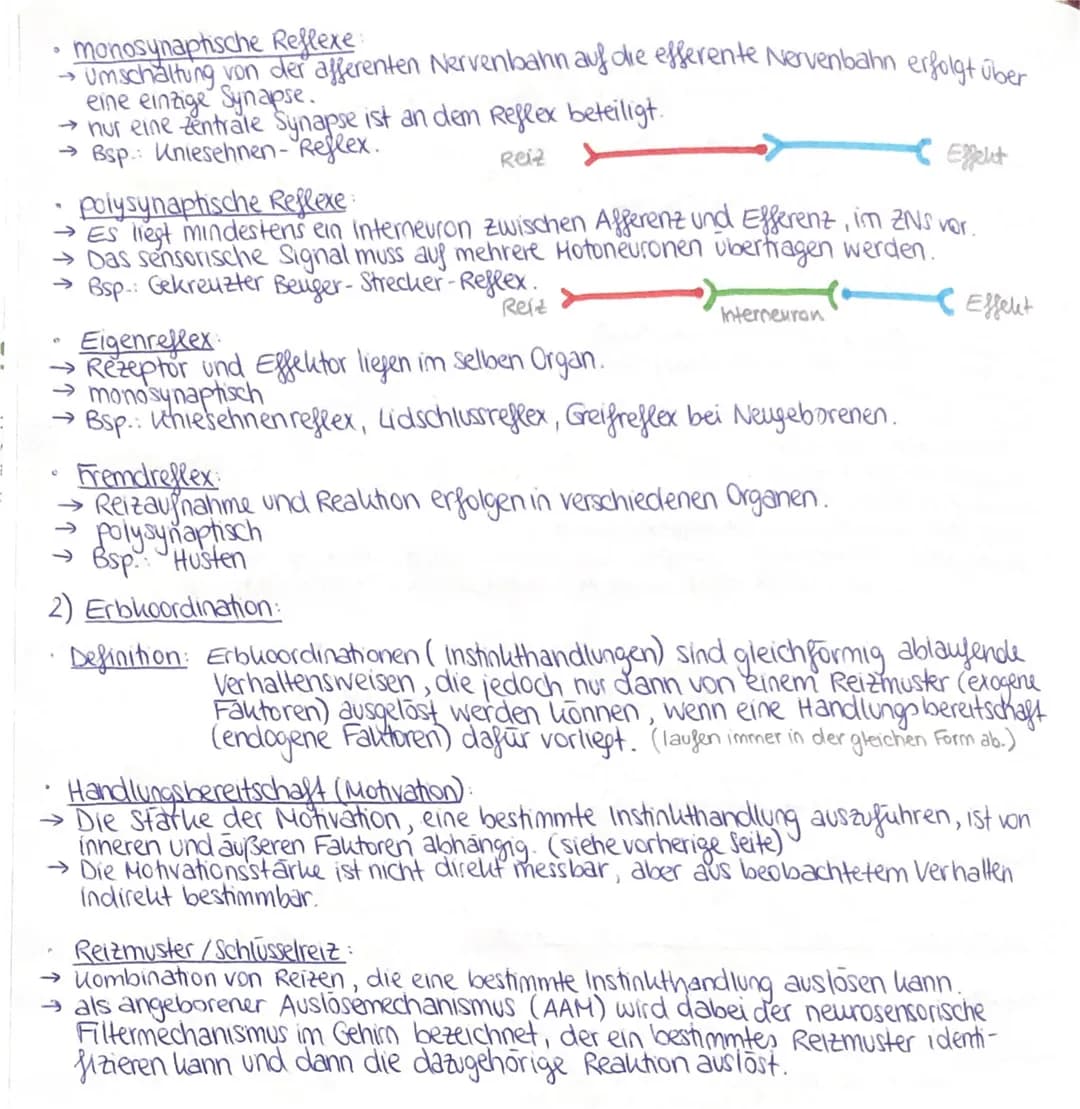 • monosynaptische Reflexe:
→ Umschaltung von der afferenten Nervenbahn auf die efferente Nervenbahn erfolgt über
eine einzige Synapse.
→ nur eine zentrale Synapse ist an dem Reflex beteiligt.
→ Bsp.: Kniesehnen-Reflex.
Reiz Effekt
• polysynaptische Reflexe:
→ Es liegt mindestens ein Interneuron zwischen Afferenz und Efferenz, im ZNS vor.
→ Das sensorische Signal muss auf mehrere Motoneuronen übertragen werden.
→ Bsp.: Gekreuzter Beuger-Strecker-Reflex.
Reiz Interneuron Effekt
• Eigenreflex:
→ Rezeptor und Effektor liegen im selben Organ.
→ monosynaptisch
→ Bsp.: Kniesehnenreflex, Lidschlussreflex, Greifreflex bei Neugeborenen.
• Fremdreflex:
→ Reizaufnahme und Reaktion erfolgen in verschiedenen Organen.
→ polysynaptisch
→ Bsp.: Husten
2) Erbkoordination:
• Definition: Erbkoordinationen (Instinkthandlungen) sind gleichförmig ablaufende
Verhaltensweisen, die jedoch nur dann von einem Reizmuster (exogene
Faktoren) ausgelöst werden können, wenn eine Handlungsbereitschaft
(endogene Faktoren) dafür vorliegt. (laufen immer in der gleichen Form ab.)
• Handlungsbereitschaft (Motivation):
→ Die Stärke der Motivation, eine bestimmte Instinkthandlung auszuführen, ist von
inneren und äußeren Faktoren abhängig. (siehe vorherige Seite)
→ Die Motivationsstärke ist nicht direkt messbar, aber aus beobachtetem Verhalten
indirekt bestimmbar.
• Reizmuster / Schlüsselreiz:
→ Kombination von Reizen, die eine bestimmte Instinkthandlung auslösen kann.
→ als angeborener Auslösemechanismus (AAM) wird dabei der neurosensorische
Filtermechanismus im Gehirn bezeichnet, der ein bestimmtes Reizmuster identi-
fizieren kann und dann die dazugehörige Reaktion auslöst.